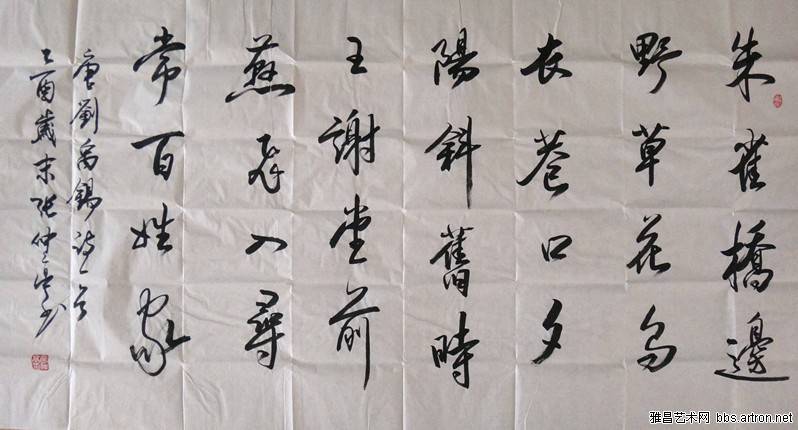 朱雀橋邊
野草花烏
衣巷口夕
陽斜舊時
王謝堂前
燕飛入尋
常百姓家
唐劉禹錫诗一首
乙酉歲末张仲书
雅昌艺术网 bbs.artron.net